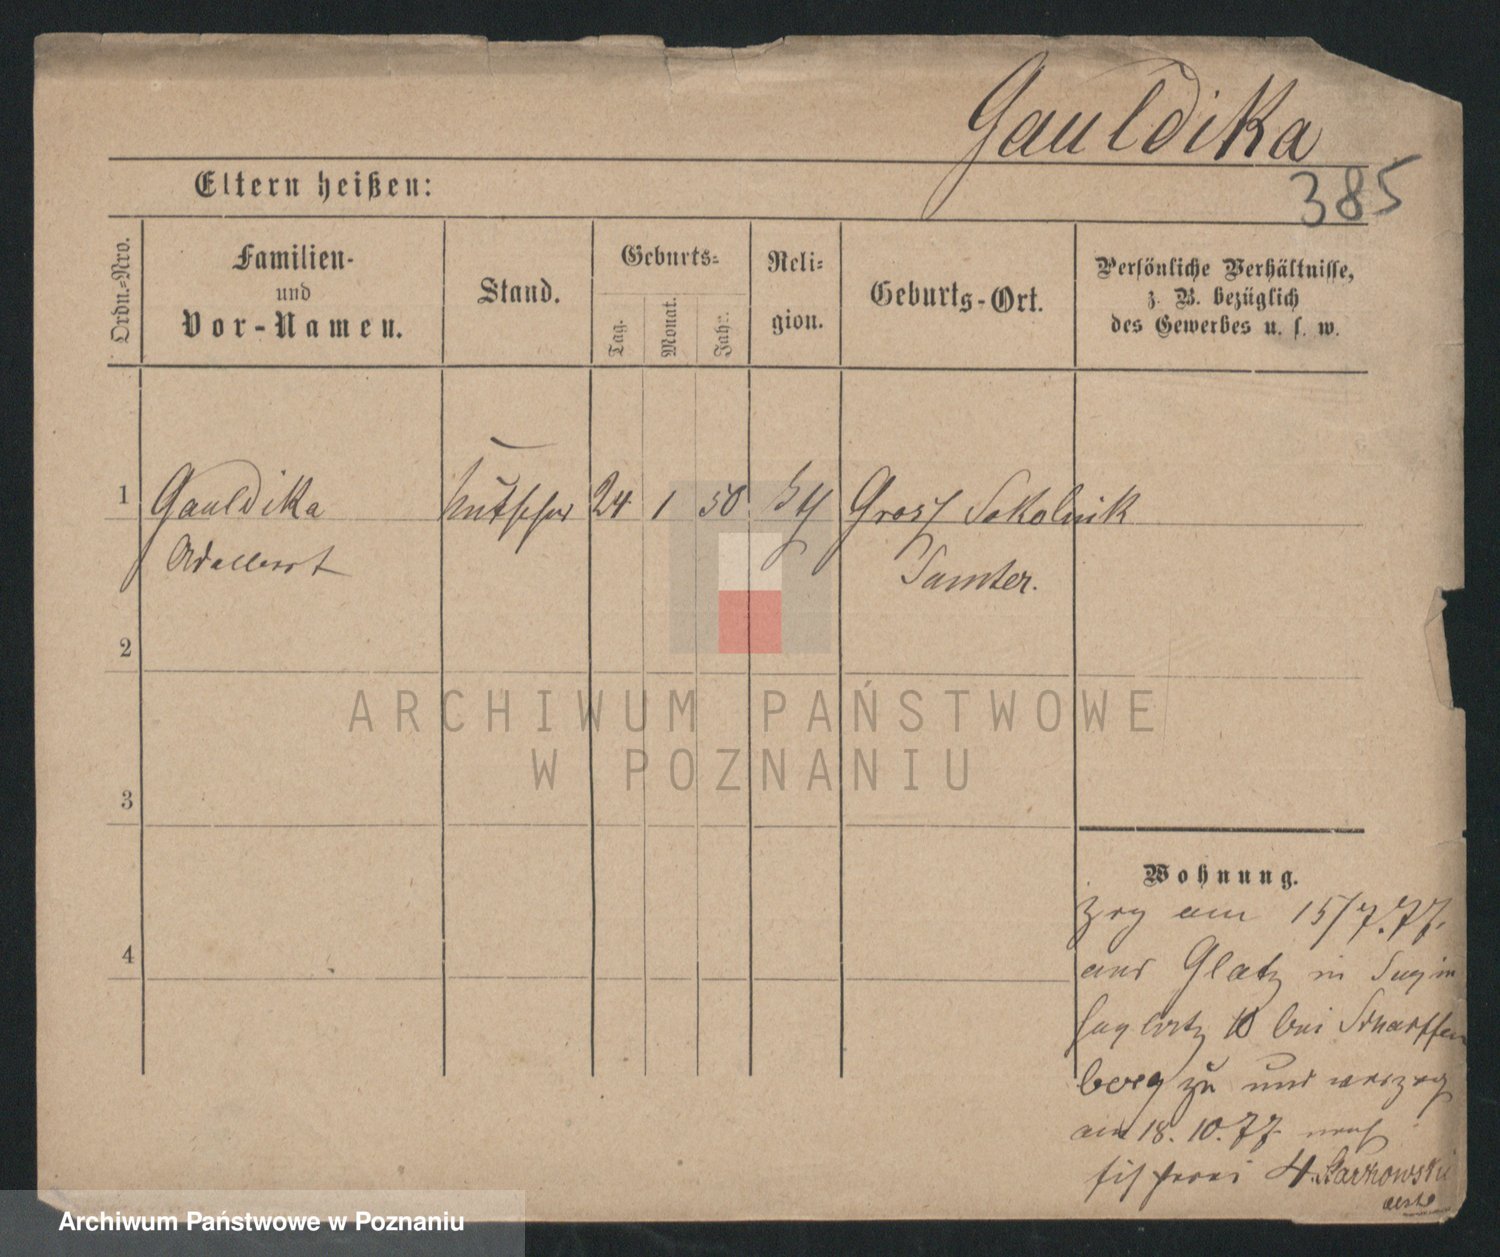 Gauldika
385
Eltern heißen:
Ordn.=Nro.
Familien-
und
Vor-Namen.
Stand.
Geburts=
Tag.
Monat.
Jahr.
Reli=
gion.
Geburts-Ort.
Persönliche Verhältnisse,
z. B. bezüglich
des Gewerbes u. s. w.
1 Gauldika Kutscher 24 1 50 Gross Sokolnik
Adalbert Samter.
2
3
4
Wohnung.
zog am 15/7.77.
aus Glatz in
10 bei Scharffen
berg zu und verzog
am 18.10.77 nach
Fischerei 4
ARCHIWUM PAŃSTWOWE
W POZNANIU
Archiwum Państwowe w Poznaniu